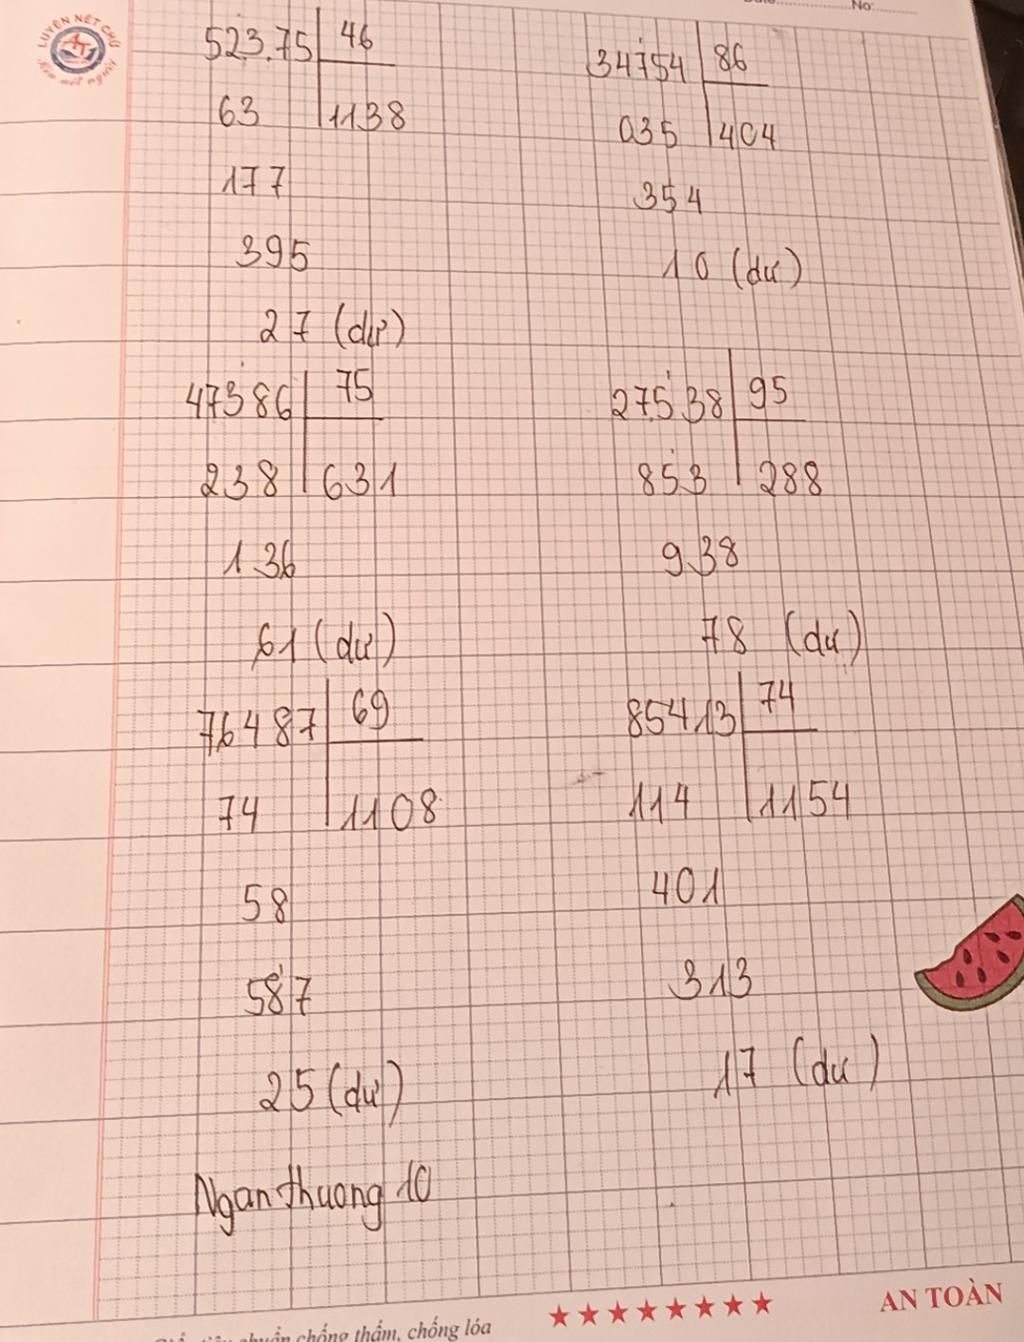 LUYỆN NÉT CHỮ
Rèn nết người
No:
523.75 46
63 1138
177
395
27 (dư)
34754 86
035 404
354
10 (dư)
47386 75
238 631
136
61 (dư)
275.38 95
853 288
938
78 (dư)
76487 69
74 1108
58
587
25 (dư)
85413 74
114 1154
401
313
17 (dư)
Ngan thuong 10
chuẩn chống thấm, chống lóa
AN TOÀN